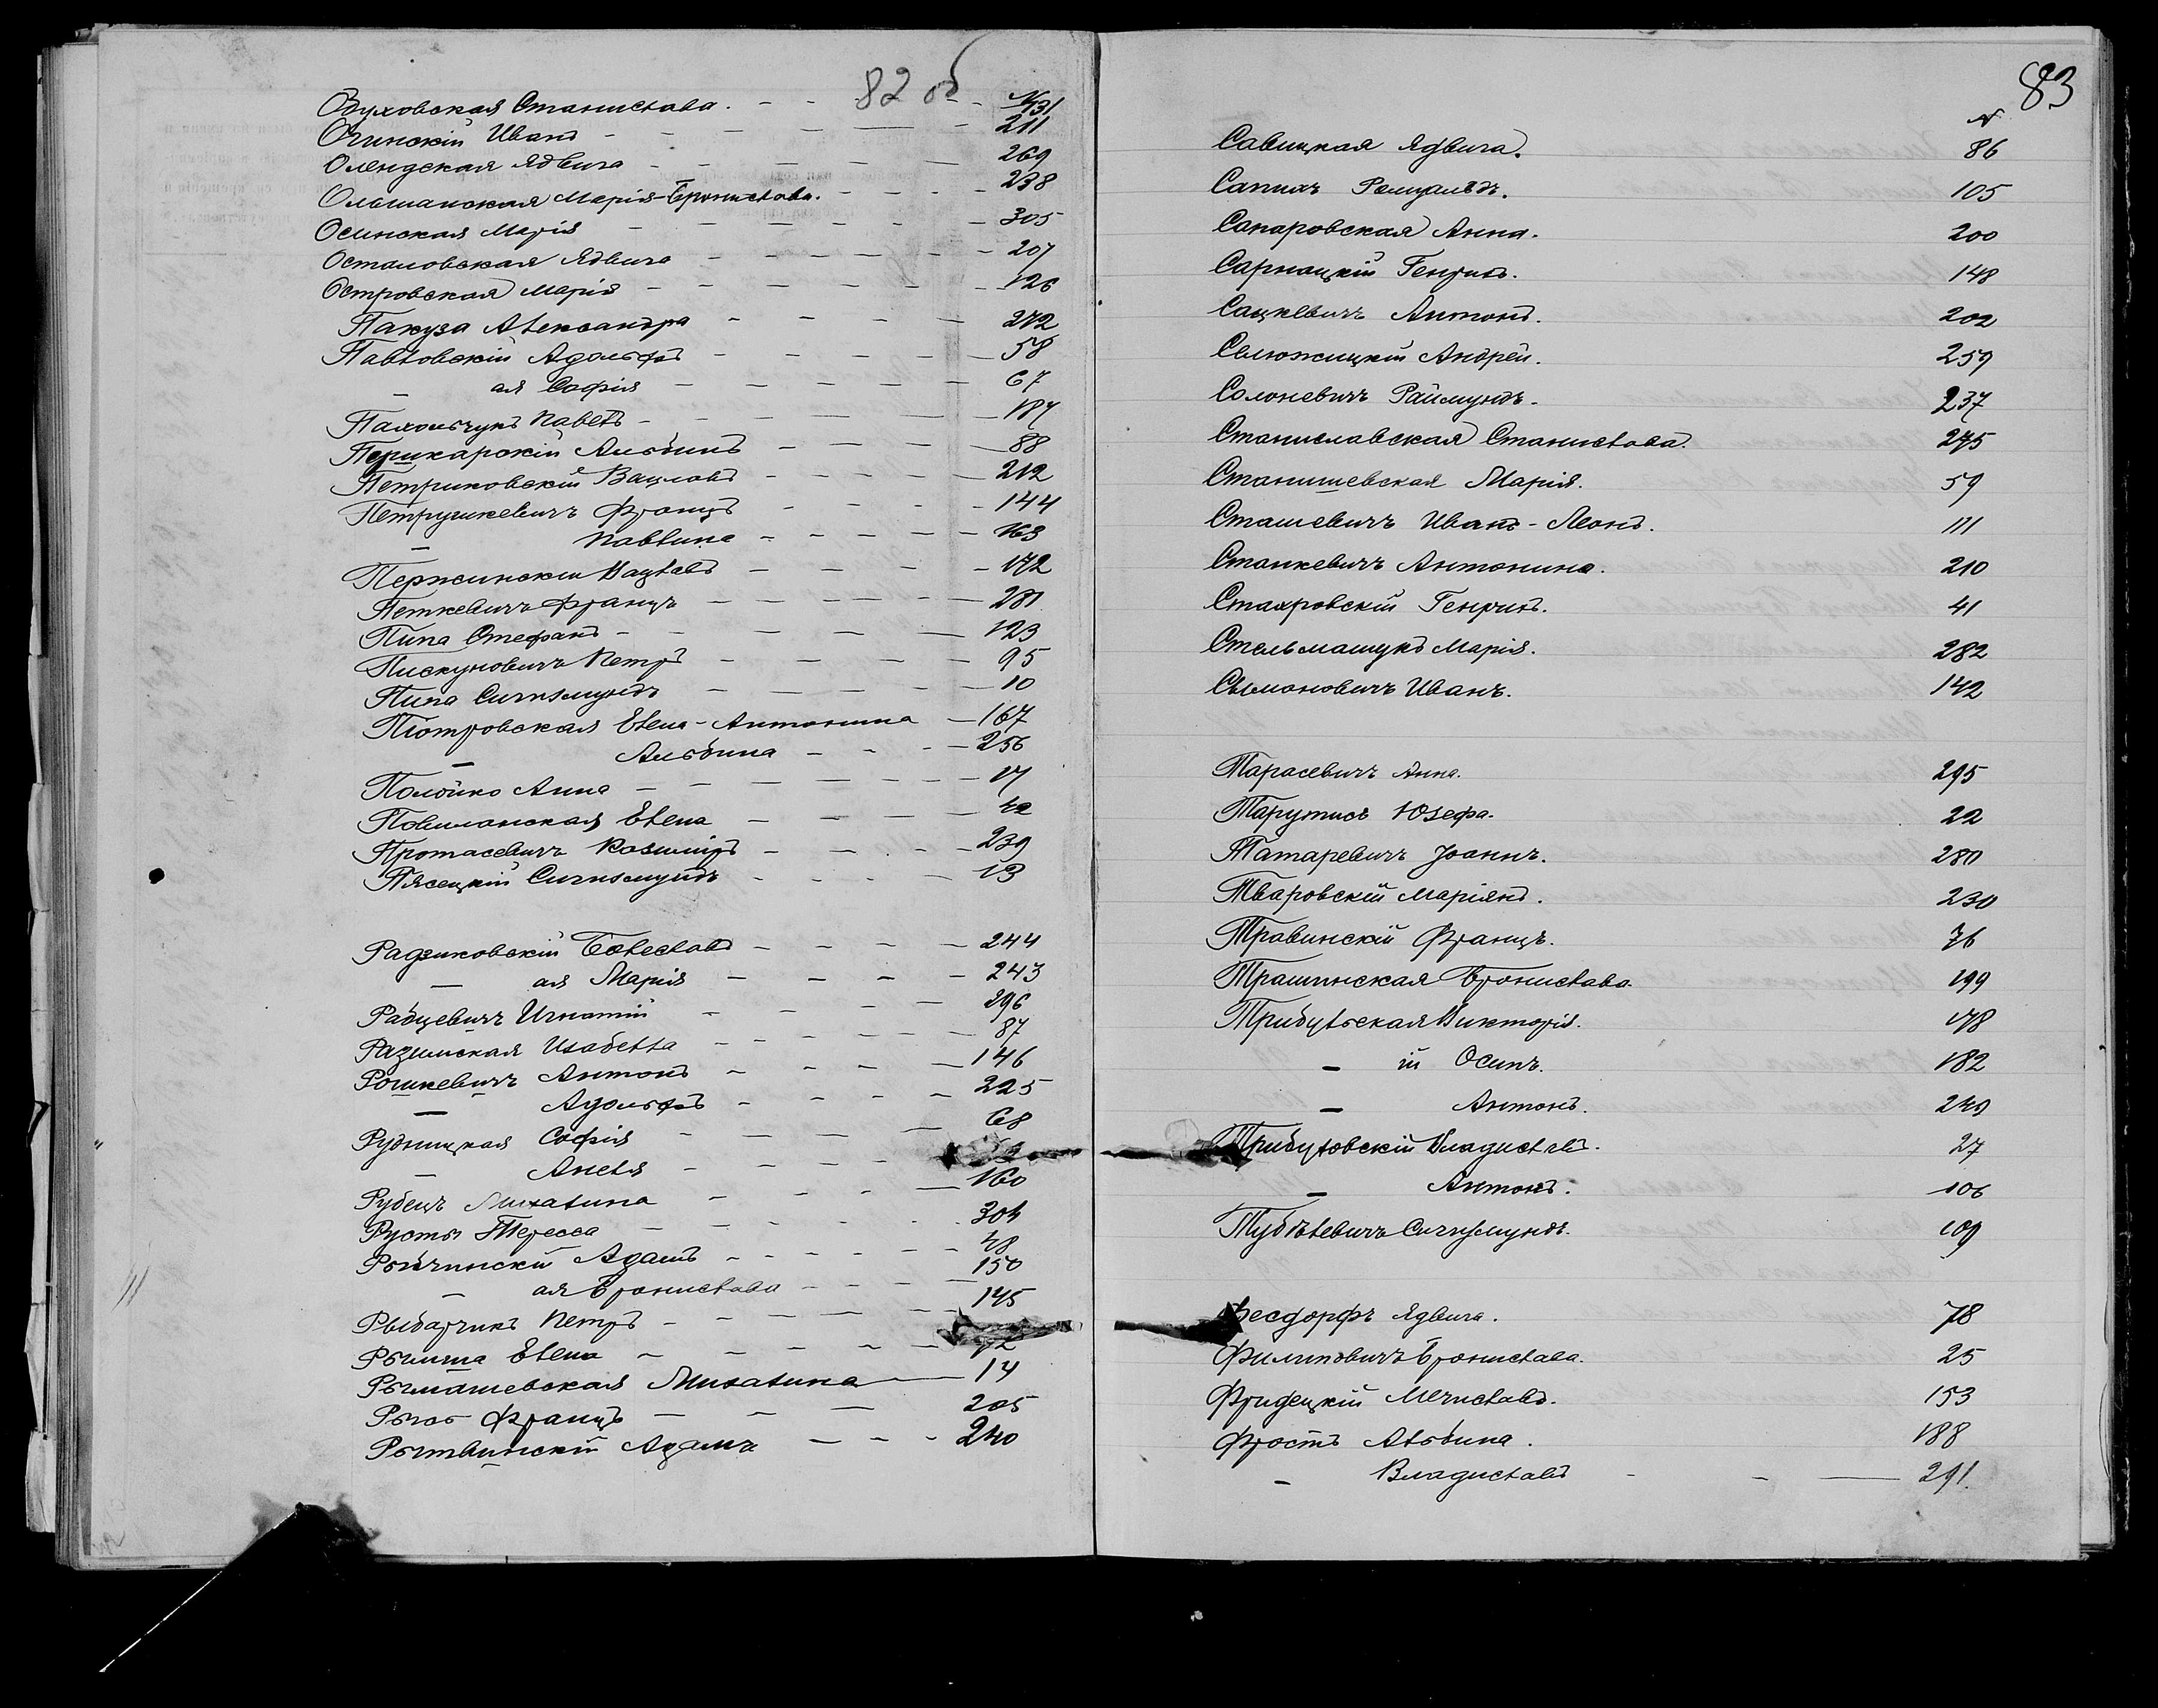 82 об
№
Одуховская Станислава. 131
Огинскій Иванъ 211
Олендская Ядвига 269
Ольшанская Марія-Бронислава. 238
Осинская Марія 305
Остаповская Ядвига 207
Островская Марія 126
Пакуза Александра 272
Павловскій Адольфъ 58
— ая Софія 67
Пахольчукъ Павелъ 187
Перикарскій Альбинъ 88
Петриковскій Вацлавъ 212
Петрушкевичъ Францъ 144
— Павлина 163
Пержинскій Вацлавъ 172
Петкевичъ Францъ 281
Пипа Стефанъ 123
Пискуновичъ Петръ 95
Пипа Сигизмундъ 10
Піотровская Елена-Антонина 167
— Альбина 256
Полойко Анна 17
Повиланская Елена
Протасевичъ Казиміръ 239
Пясецкій Сигизмундъ 13
Радзиковскій Болеславъ 244
— ая Марія 243
Рабцевичъ Игнатій 296
Разумская Изабелла 87
Рошкевичъ Антонъ 146
— Адольфъ 225
Рудницкая Софія 68
— Анеля
Рубецъ Михалина 160
Русты Тересса 304
Рыбчинскій Адамъ 48
— ая Бронислава 150
Рыбарчикъ Петръ 145
Рыгина Елена
Рымашевская Михалина 14
Рысь Францъ 205
Рытвинскій Адамъ 240
83
№
Савицкая Ядвига. 86
Сапихъ Ромуальдъ. 105
Сапаровская Анна. 200
Сарнацкій Генрихъ. 148
Сацкевичъ Антонъ. 202
Селюжицкій Андрей. 259
Солоневичъ Раймундъ. 237
Станиславская Станислава. 275
Станишевская Марія. 59
Сташевичъ Иванъ-Леонъ. 111
Станкевичъ Антонина. 210
Стахровскій Генрихъ. 41
Стельмашукъ Марія. 282
Сымоновичъ Иванъ. 142
Тарасевичъ Анна. 295
Тарутисъ Юзефа. 22
Татаревичъ Іоаннъ. 280
Тваровскій Маріянъ. 230
Травинскій Францъ. 76
Трашинская Бронислава. 199
Трибульская Викторія. 178
— ій Осипъ. 182
— Антонъ. 249
Трибуловскій Владиславъ. 27
— Антонъ. 106
Тублѣвичъ Сигизмундъ. 109
Фесдорфъ Ядвига. 78
Филиповичъ Бронислава. 25
Фридецкій Мечиславъ. 153
Фростъ Альбина. 188
— Владиславъ 291.